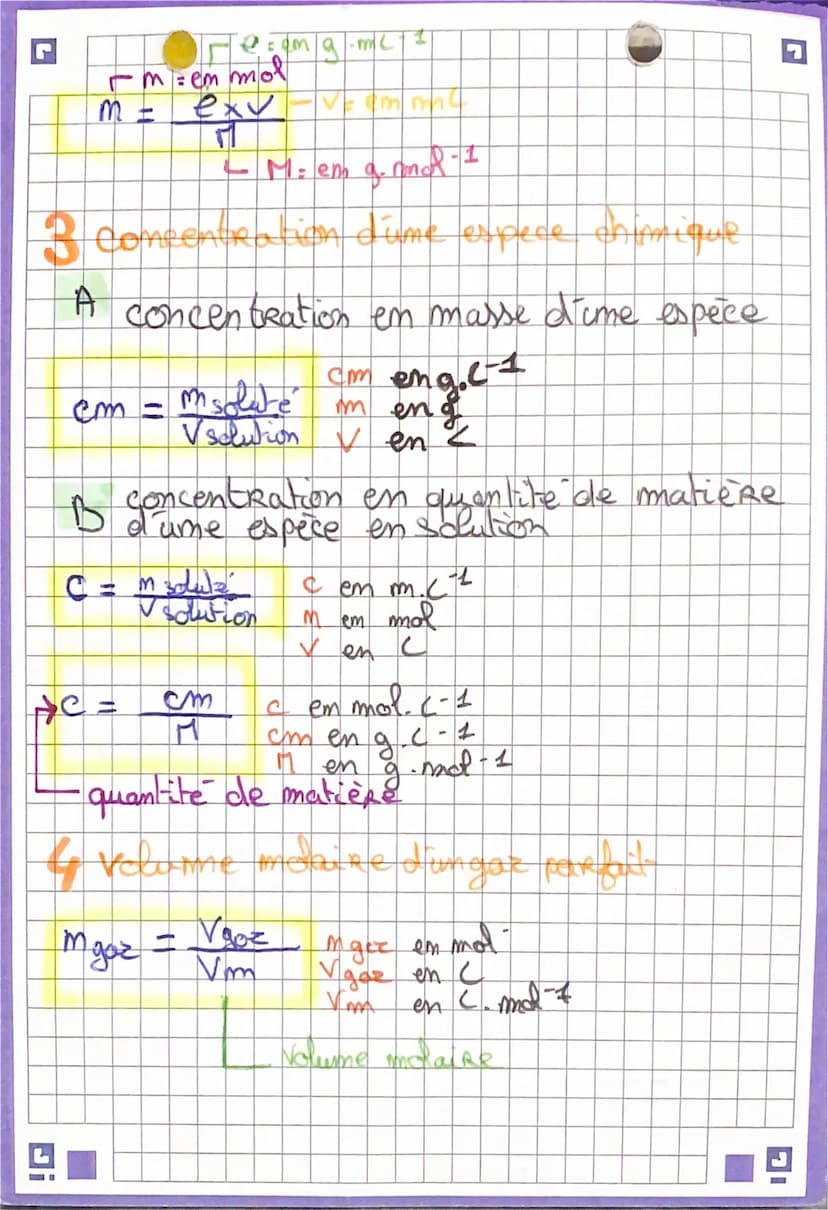 ρ = en g.mL-1
m = en mol
n = ρ×V / M
V = en mL
M = en g.mol-1
3 Concentration d'une espece chimique
A concentration en masse d'une espèce
cm = m soluté / V solution
cm en g.L-1
m en g
V en L
B concentration en quantité de matière
d'une espèce en solution
C = n soluté / V solution
C en m.L-1
n en mol
V en L
C = cm / M
C en mol.L-1
cm en g.L-1
M en g.mol-1
quantité de matière
4 Volume molaire d'un gaz parfait
n gaz = V gaz / Vm
n gaz en mol
V gaz en L
Vm en L.mol-1
volume molaire